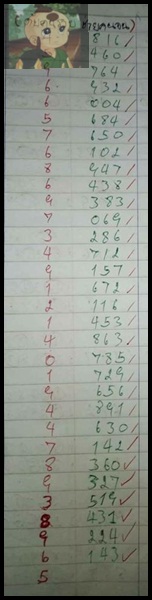 816
460
7 764
6 932
6 004
5 684
7 650
6 102
8 947
6 438
9 383
7 069
3 286
4 712
9 157
1 672
2 116
1 453
4 863
0 785
1 729
9 656
4 891
4 630
7 142
8 360
9 327
3 519
8 431
9 224
6 143
5